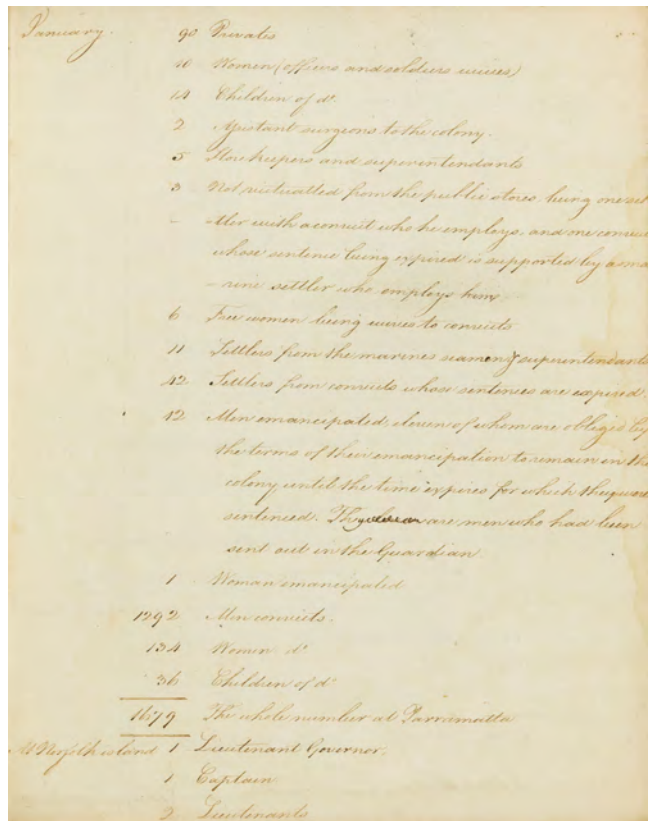 January. 90 Privates
10 Women (officers and soldiers wives)
14 Children of do.
2 Assistant surgeons to the colony.
5 Storekeepers and superintendants
3 Not victualled from the public stores, being one set
-tler with a convict who he employs, and one convict
whose sentence being expired is supported by a ma
-rine settler who employs him
6 Free women being wives to convicts
11 Settlers from the marines seamen & superintendants
42 Settlers from convicts whose sentences are expired.
12 Men emancipated, eleven of whom are obliged by
the terms of their emancipation to remain in the
colony until the time expires for which they were
sentenced. The are men who had been
sent out in the Guardian.
1 Woman emancipated
1292 Men convicts.
134 Women do
36 Children of do
1679 The whole number at Parramatta
At Norfolk island 1 Lieutenant Governor.
1 Captain
2 Lieutenants